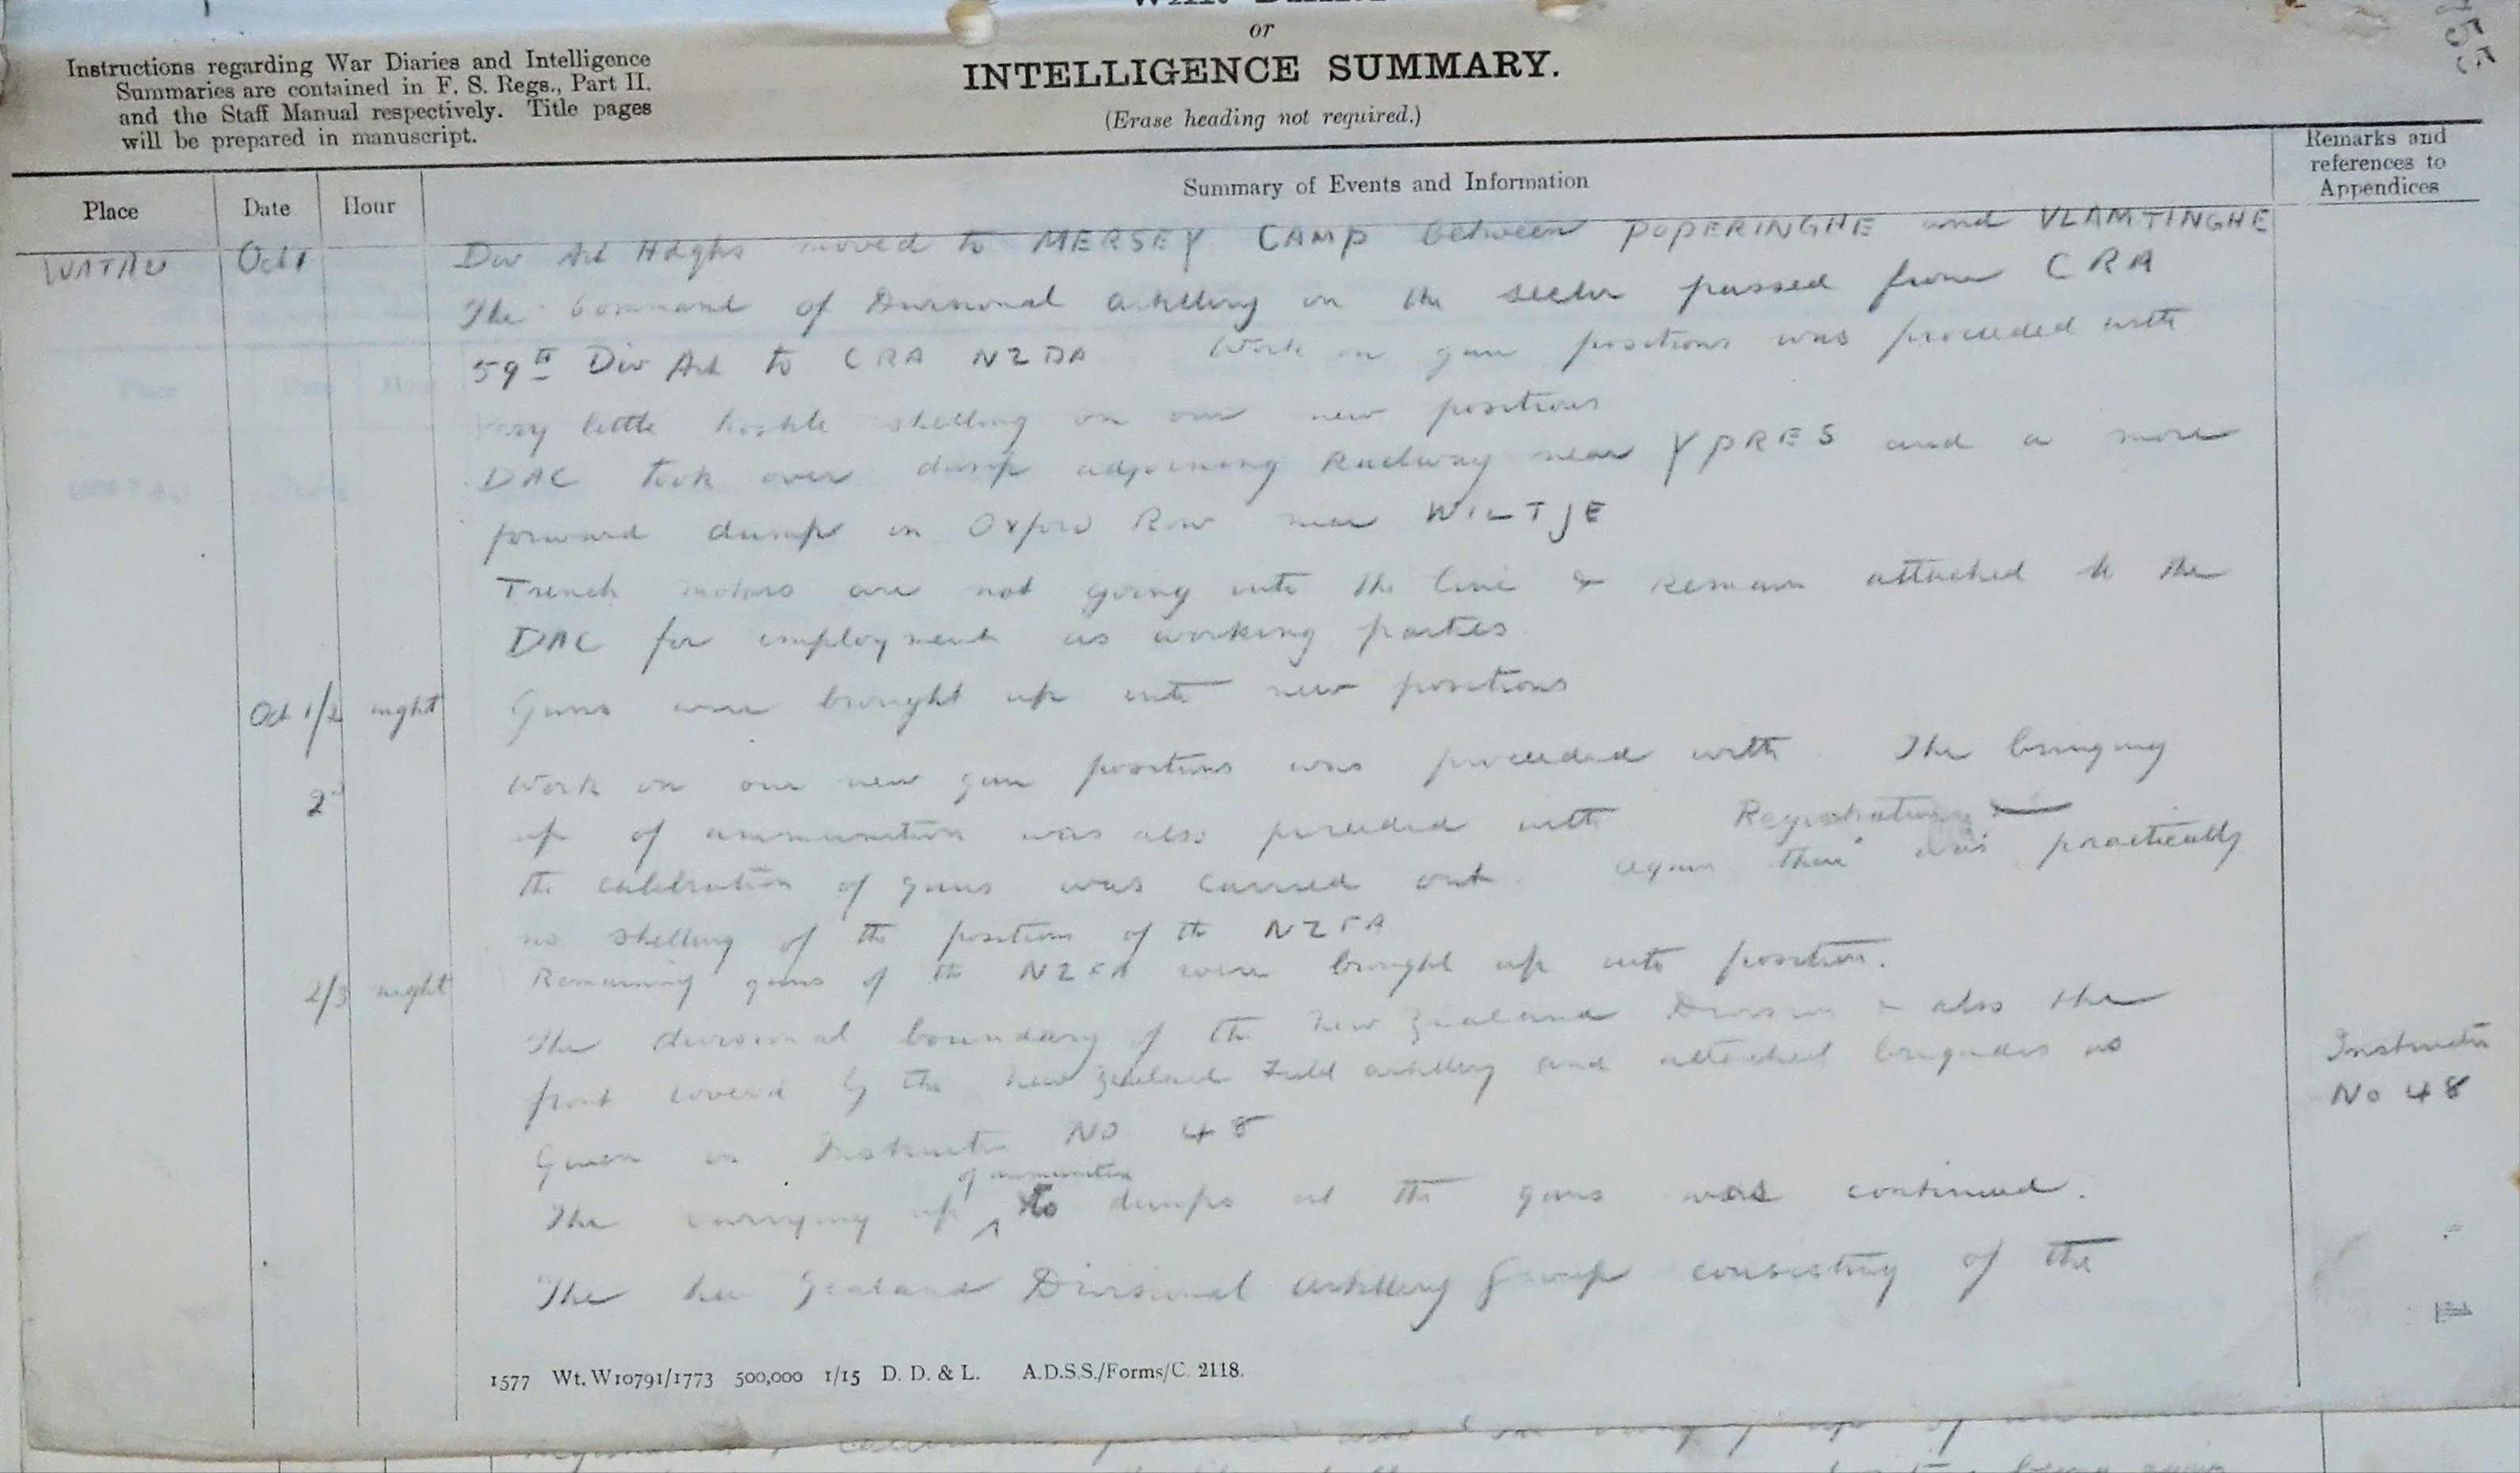 or
INTELLIGENCE SUMMARY.
(Erase heading not required.)
Instructions regarding War Diaries and Intelligence
Summaries are contained in F. S. Regs., Part II.
and the Staff Manual respectively. Title pages
will be prepared in manuscript.
Place Date Hour Summary of Events and Information Remarks and
references to
Appendices
WATAU Oct 1 Div Art Hdqrs moved to MERSEY CAMP between POPERINGHE and VLAMTINGHE
The command of Divisional artillery in the sector passed from CRA
59th Div Art to CRA NZDA Work on gun positions was proceeded with
Very little hostile shelling on our new positions
DAC took over dump adjoining Railway near YPRES and a more
forward dump in Oxford Row near WILTJE
Trench motars are not going into the line & remain attached to the
DAC for employment as working parties
Oct 1/2 night Guns were brought up into new positions
2nd Work on our new gun positions was proceeded with The bringing
up of ammunition was also proceeded with Registration &
the calibration of guns was carried out. Again there was practically
no shelling of the positions of the NZFA
2/3 night Remaining guns of the NZFA were brought up into position.
The divisional boundary of the New Zealand Division & also the
front covered by the New Zealand Field artillery and attached brigades as
Given in Instruction No 48 Instruction
No 48
The carrying up of ammunition to dumps at the guns was continued.
The New Zealand Divisional Artillery Group consisting of the
1577 Wt. W10791/1773 500,000 1/15 D. D. & L. A.D.S.S./Forms/C. 2118.